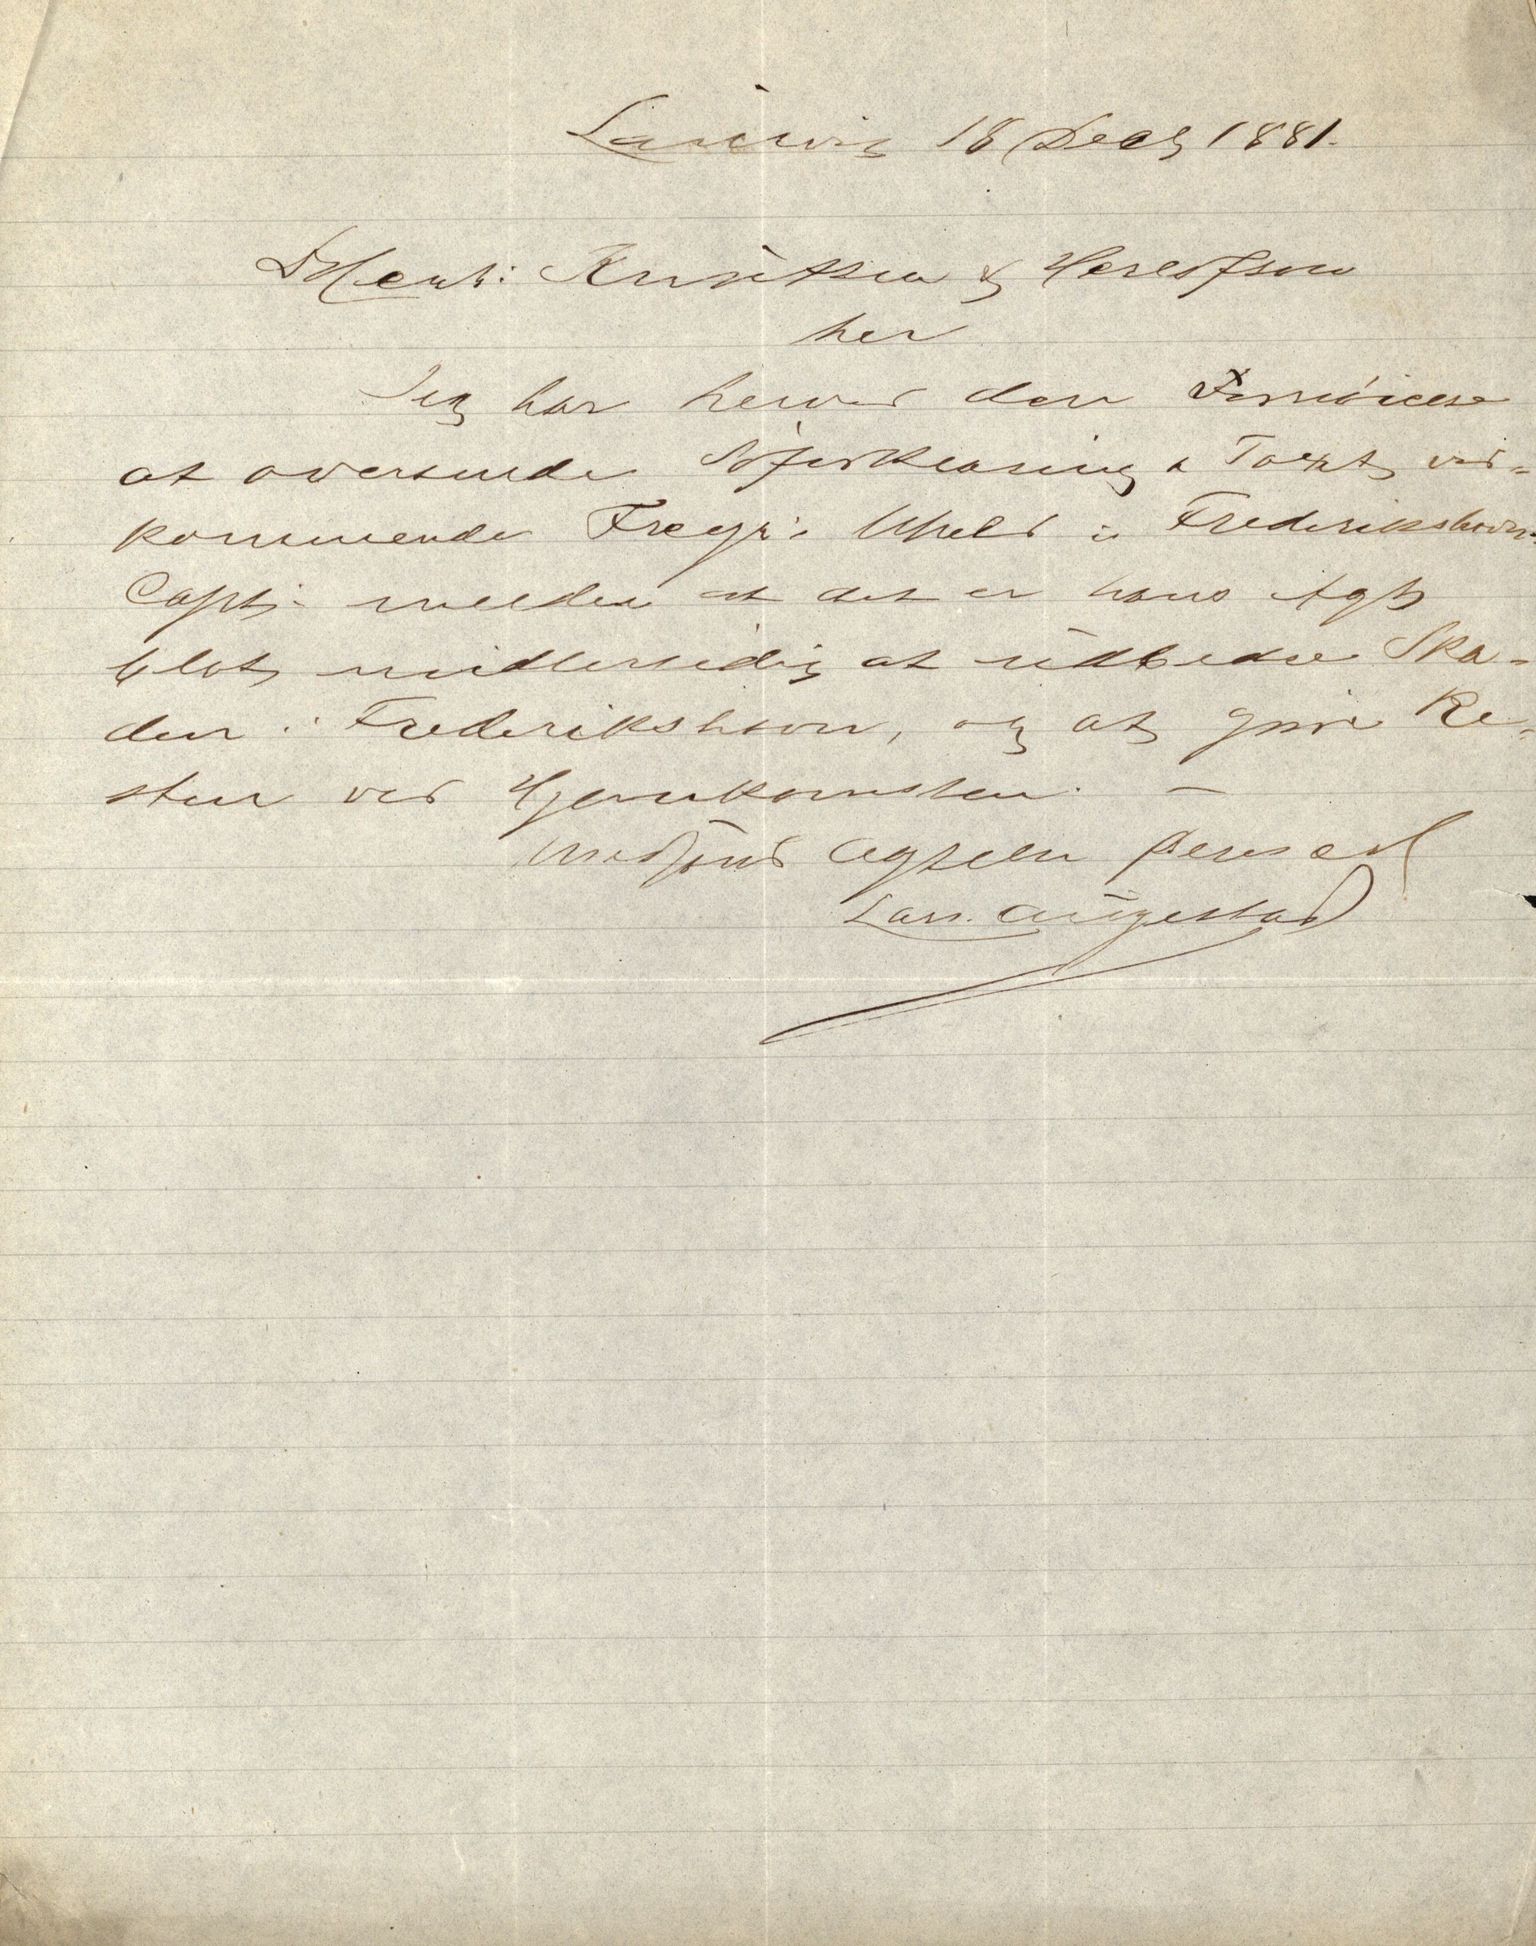 Laurvig 18 Decb 1881.
DHerrr: Knudtsen & Herlofson
her
Jeg har herved den Fornöielse
at oversende Söforklaring & Taxt ved=
kommende Freyr's Uheld i Frederikshavn.
Capt: melder at det er hans Agt
blot midlertidig at udbedre Ska-
den i Frederikshavn, og at gjöre Re-
sten ved Hjemkomsten. —
Med fuld Agtelse Deres erb
Lars Angestad